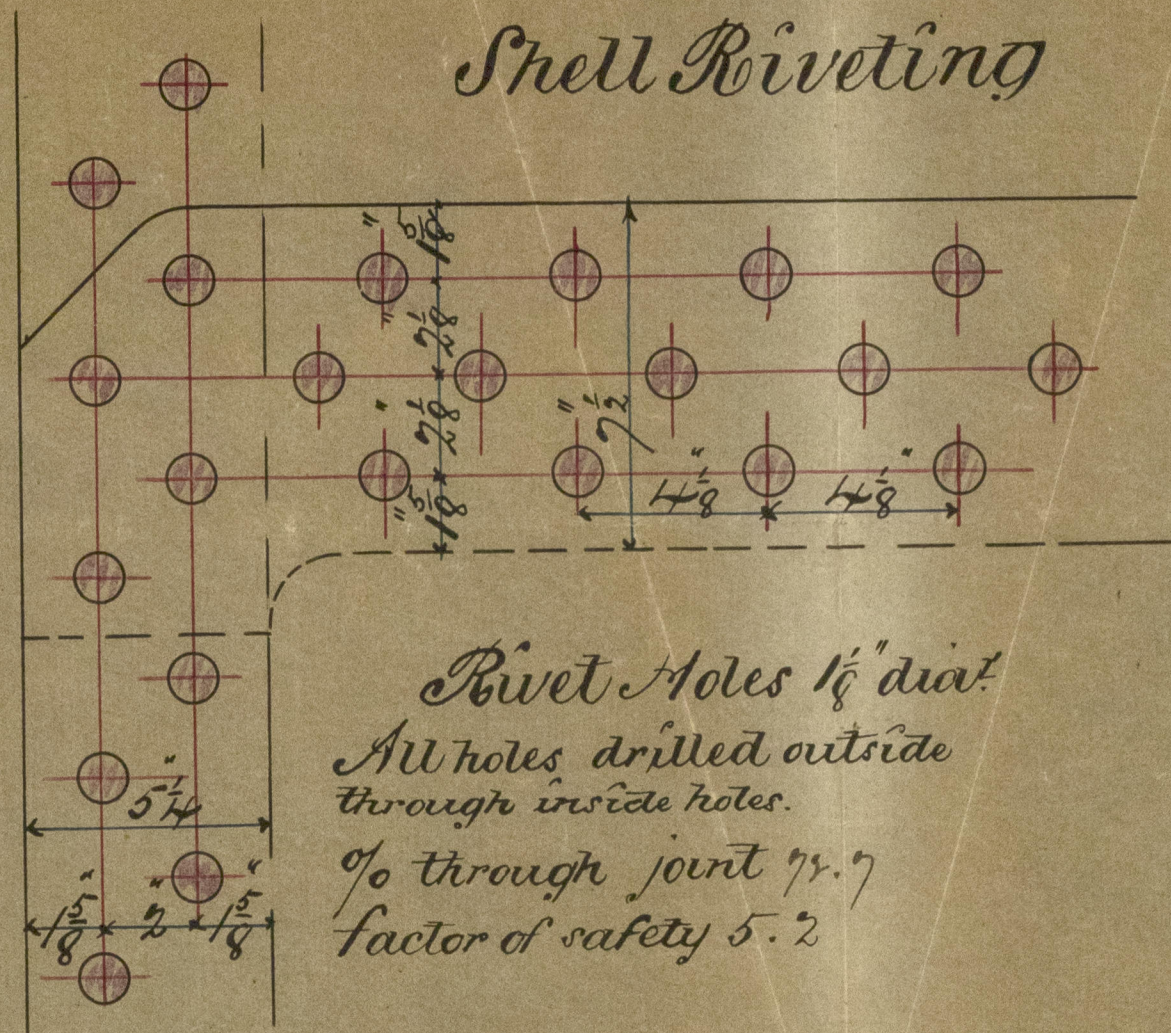 Shell Riveting
1 5/8"
2 1/8"
2 1/8"
1 5/8"
7 1/2"
4 1/8" 4 1/8"
Rivet Holes 1 1/8" diar.
All holes drilled outside
through inside holes.
% through joint 72.7
factor of safety 5.2
5 1/4"
1 5/8" 2" 1 5/8"